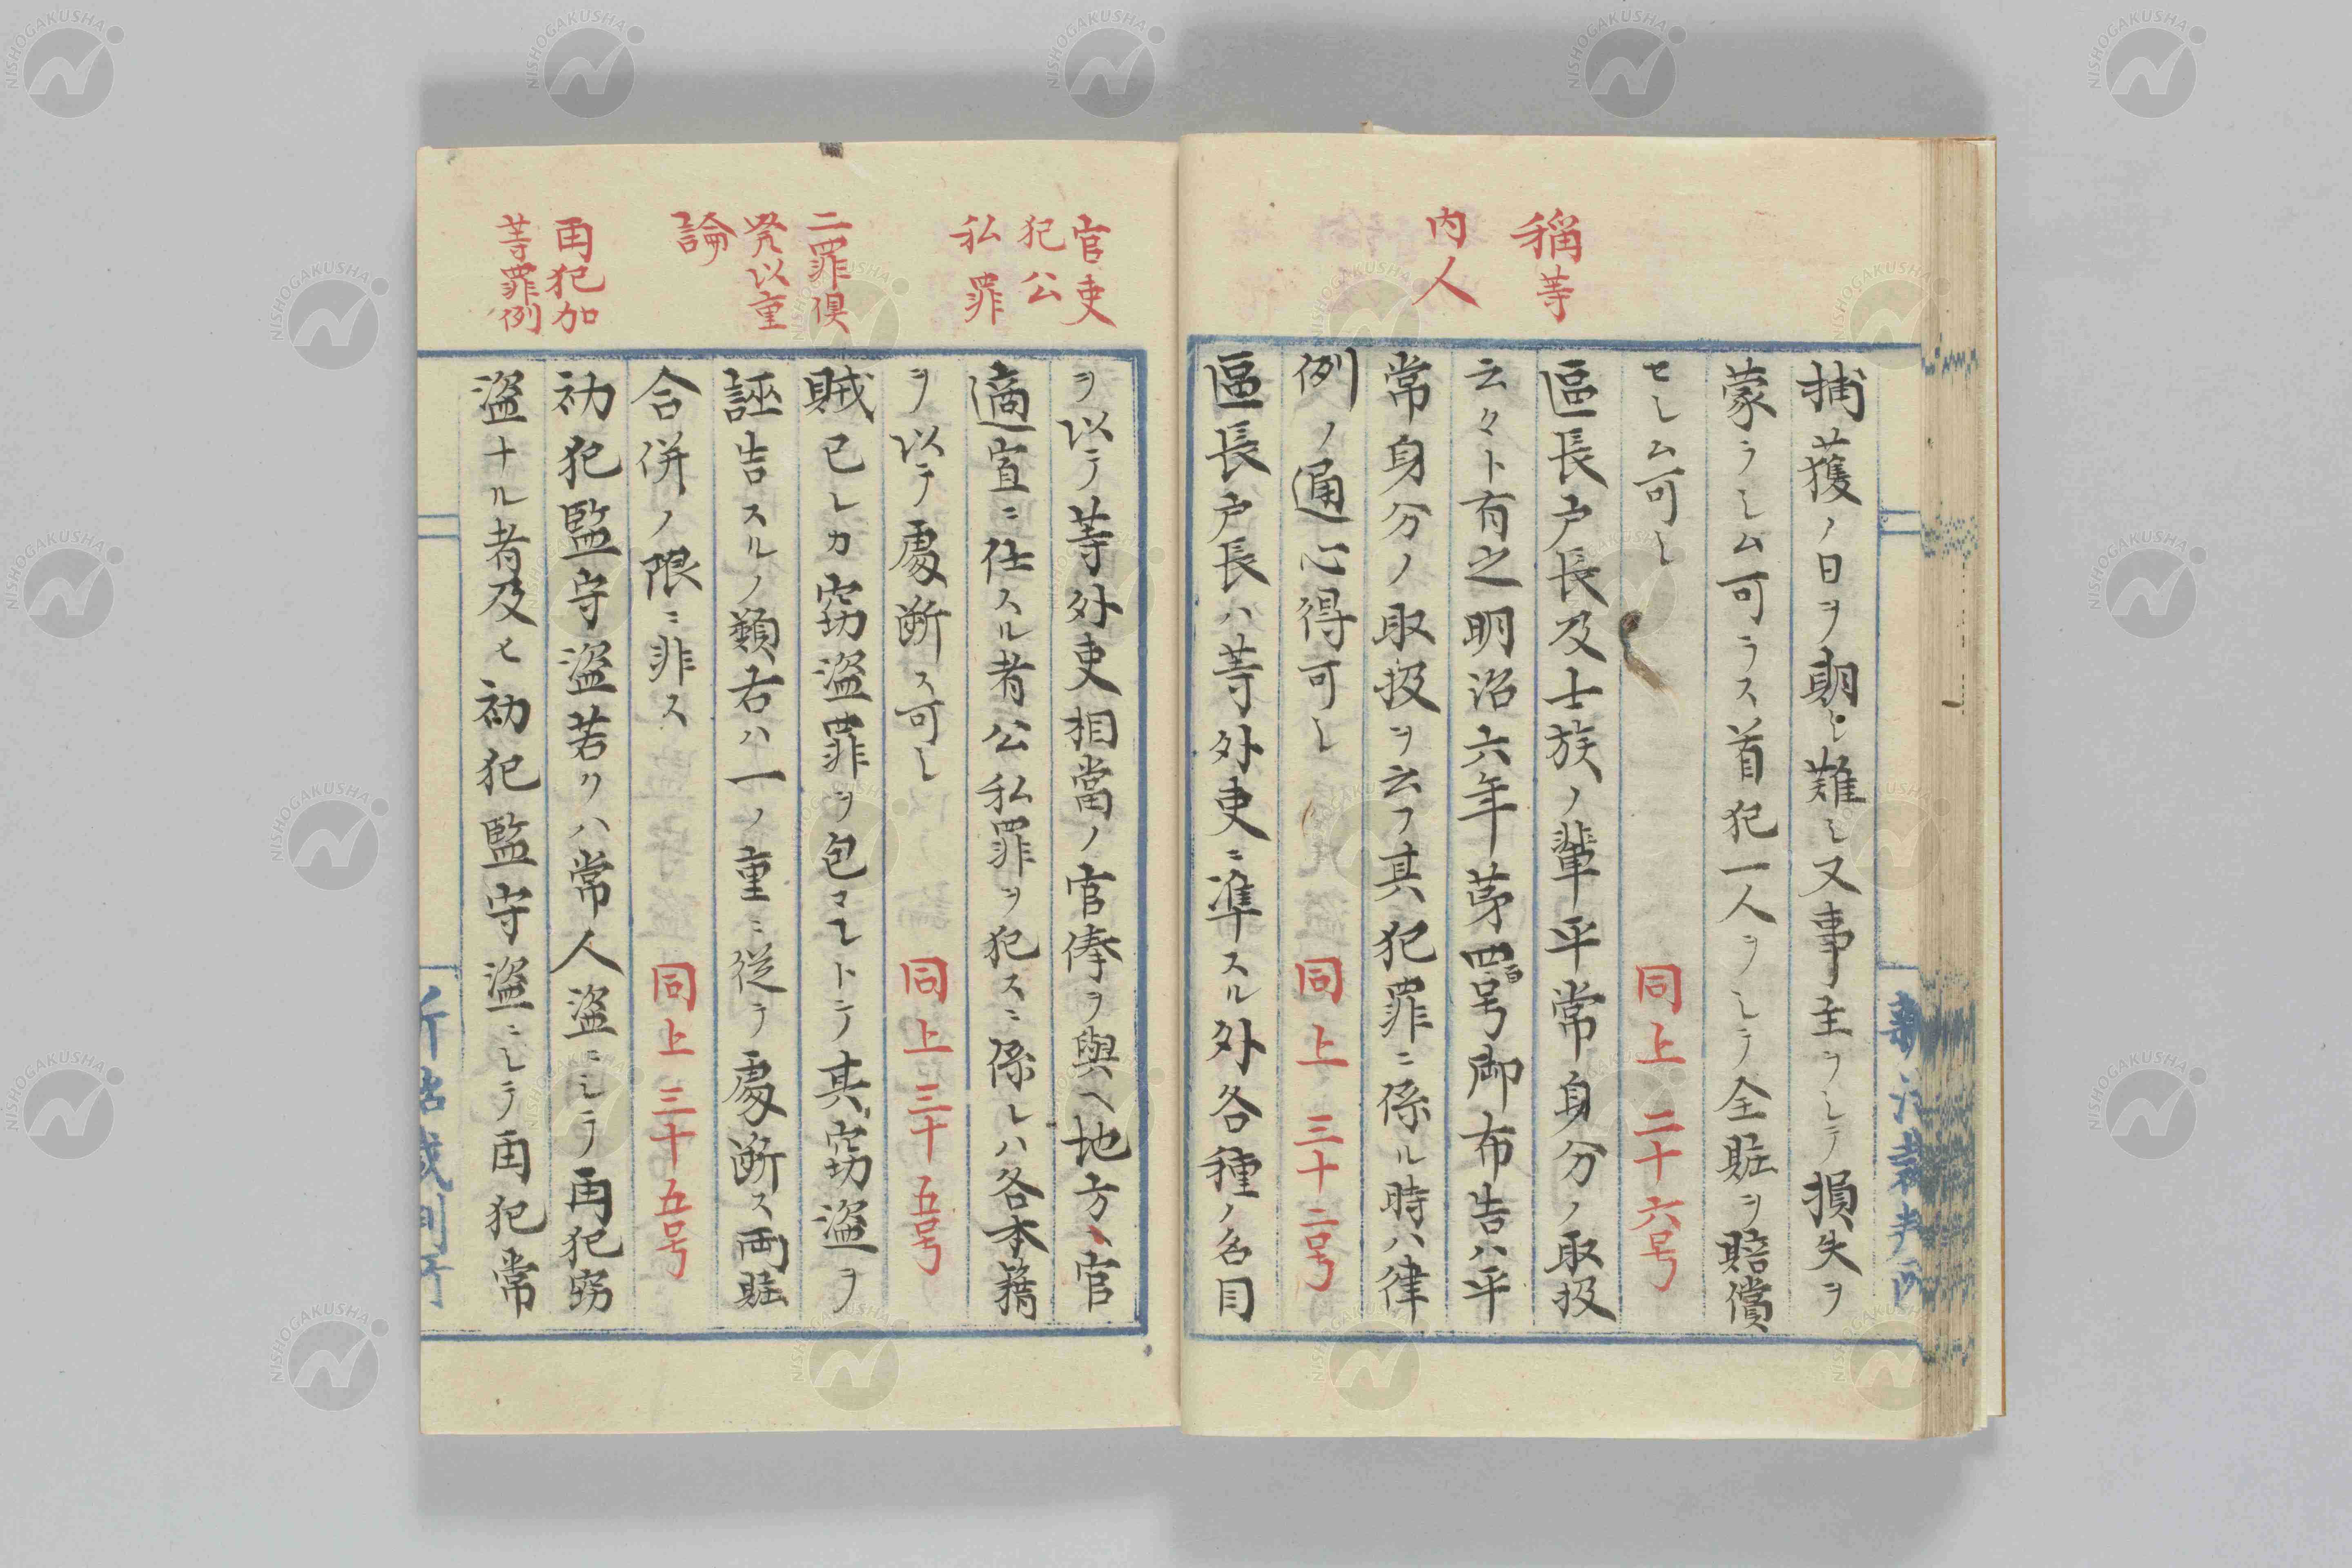 稱等
内人
捕獲ノ日ヲ期シ難シ又事主ヲシテ損失ヲ
蒙ラシム可ラス首犯一人ヲシテ全賍ヲ賠償
セシム可シ
同上二十六号
區長戸長及士族ノ輩平常身分ノ取扱
云々ト有之明治六年第四百号御布告ハ平
常身分ノ取扱ヲ云フ其犯罪ニ係ル時ハ律
例ノ通心得可シ
同上三十二号
區長戸長ハ等外吏ニ準スル外各種ノ名目
新治裁判所
官吏
犯公
私罪
二罪倶
発以重
論
再犯加
等罪例
ヲ以テ等外吏相當ノ官俸ヲ與ヘ地方官
適宜ニ仕スル者公私罪ヲ犯スニ係レハ各本籍
ヲ以テ處断ス可シ
同上三十五号
賊已レカ窃盗罪ヲ包マントテ其窃盗ヲ
誣告スルノ類右ハ一ノ重ニ従テ處断ス両賍
合併ノ限ニ非ス
同上三十五号
初犯監守盗若クハ常人盗ニシテ再犯窃
盗ナル者及ヒ初犯監守盗ニシテ再犯常
新治裁判所
NISHOGAKUSHA